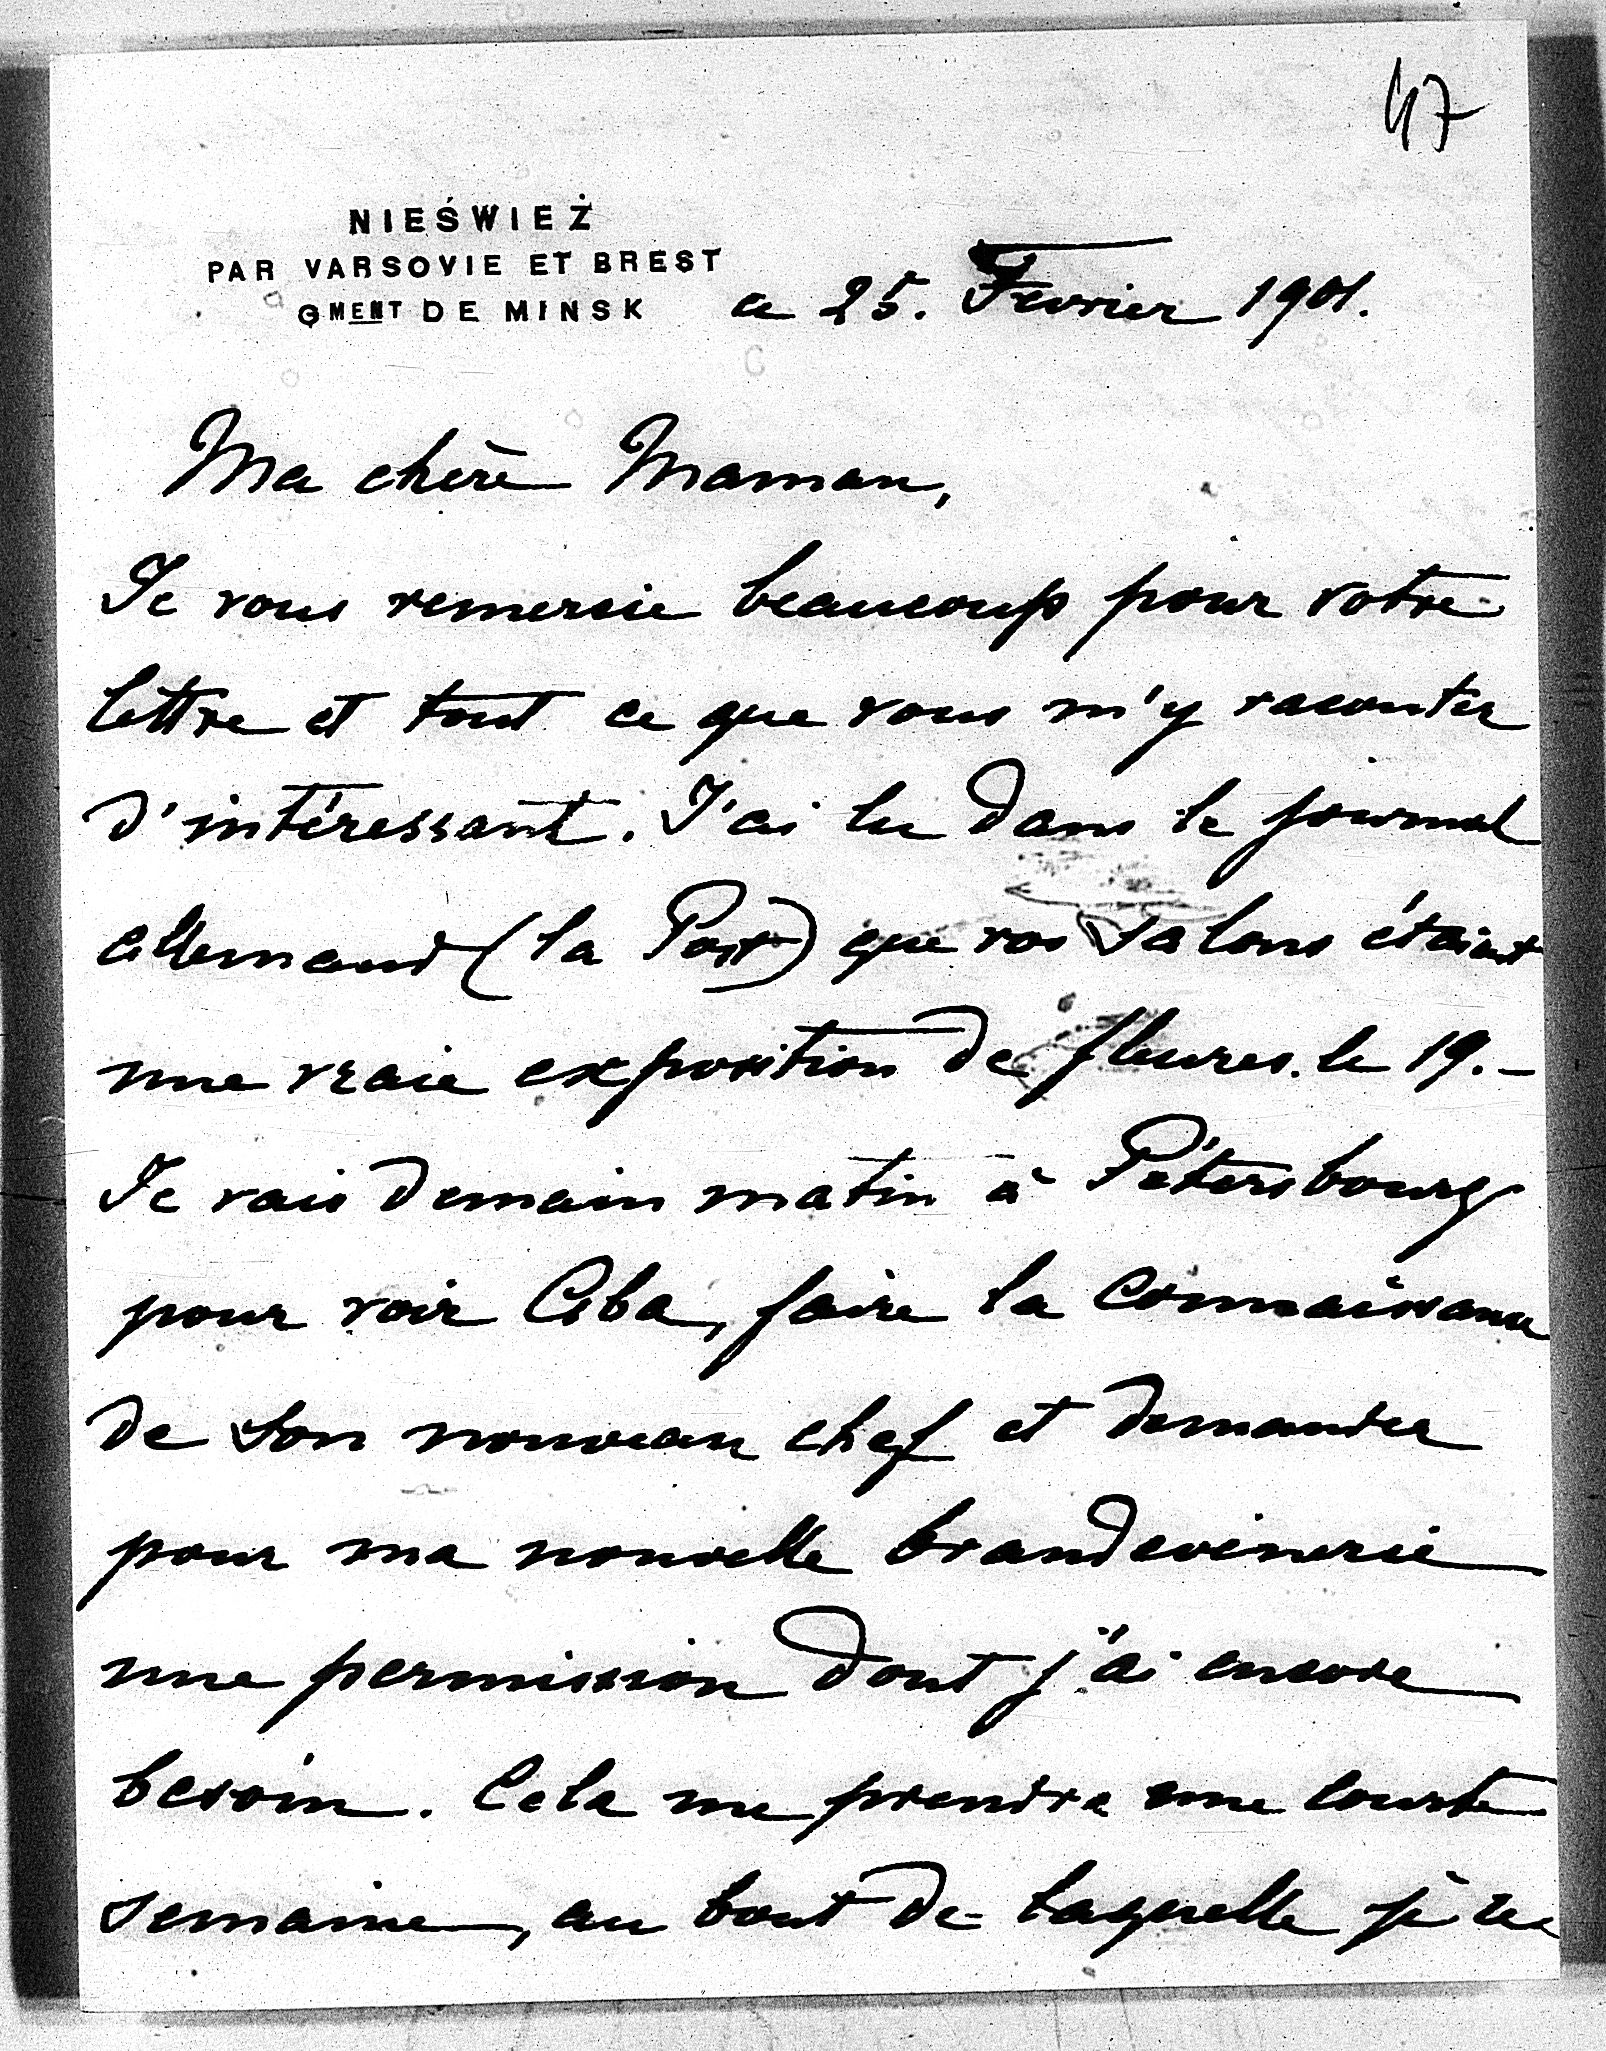 47
NIEŚWIEŻ
PAR VARSOVIE ET BREST
GMENT DE MINSK
ce 25. Fevrier 1901.
Ma chère Maman,
Je vous remercie beaucoup pour votre
lettre et tout ce que vous m'y racontez
d'intéressant. J'ai lu dans le journal
allemand (la Post) que vos salons étaient
une vraie exposition de fleures le 19.-
Je vais demain matin à Pétersbourg
pour voir Aba, faire la connaissance
de son nouveau chef et demander
pour ma nouvelle brandevinerie
une permission dont j'ai encore
besoin. Cela me prendra une courte
semaine, au bout de laquelle je